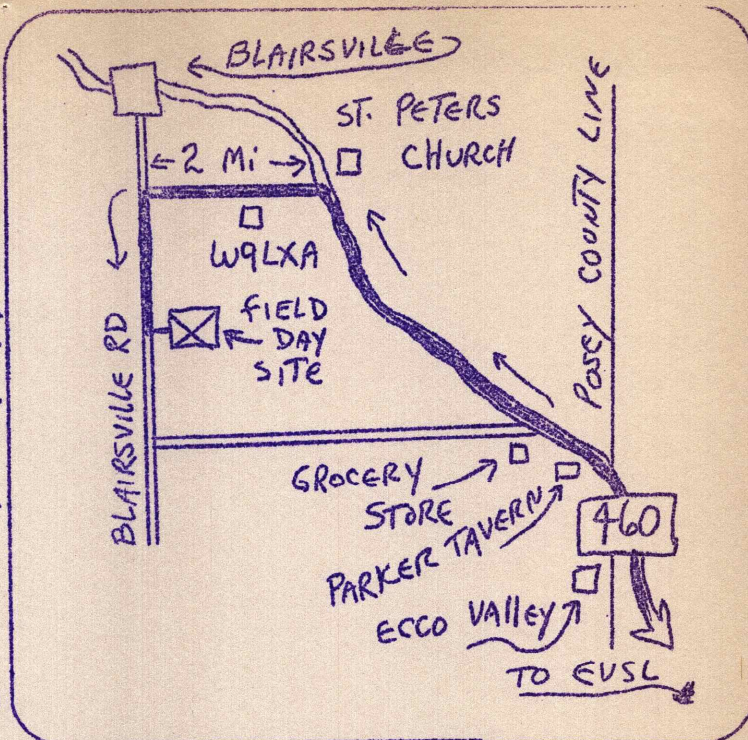 BLAIRSVILLE
ST. PETERS
CHURCH
← 2 Mi →
W9LXA
FIELD
DAY
SITE
BLAIRSVILLE RD
POSEY COUNTY LINE
GROCERY
STORE
PARKER TAVERN
460
ECCO VAlley
TO EVSL